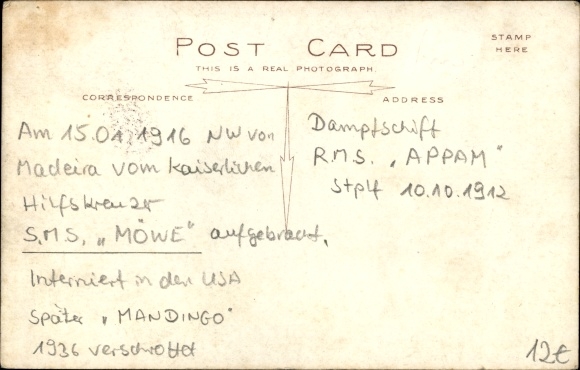 POST CARD
THIS IS A REAL PHOTOGRAPH.
STAMP
HERE
CORRESPONDENCE
ADDRESS
Am 15.01.1916 NW von
Madeira vom Kaiserlichen
Hilfskreuzer
S.M.S. „MÖWE" aufgebracht.
Interniert in den USA
Später „MANDINGO"
1936 verschrottet
Dampfschiff
R.M.S. „APPAM"
Stplf 10.10.1912
12€